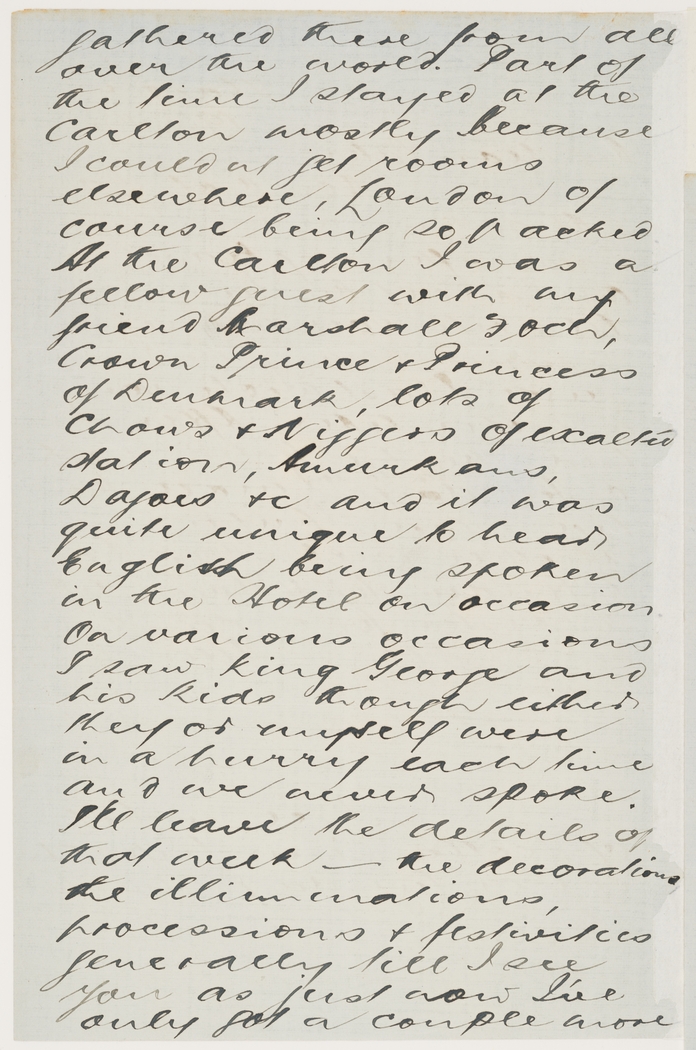 gathered there from all
over the world. Part of
the time I stayed at the
Carlton mostly because
I couldnt get rooms
elsewhere, London of
course being so packed
At the Carlton I was a
fellow guest with my
friend Marshall Foch,
Crown Prince & Princess
of Denmark, lots of
Chows & Niggers of exalted
station, Amurkans,
Dagoes &c and it was
quite unique to hear
English being spoken
in the Hotel on occasion
On various occasions
I saw King George and
his kids though either
they or myself were
in a hurry each time
and we never spoke.
I'll leave the details of
that week — the decorations,
the illuminations,
processions & festivities
generally till I see
you as just now I've
only got a couple more